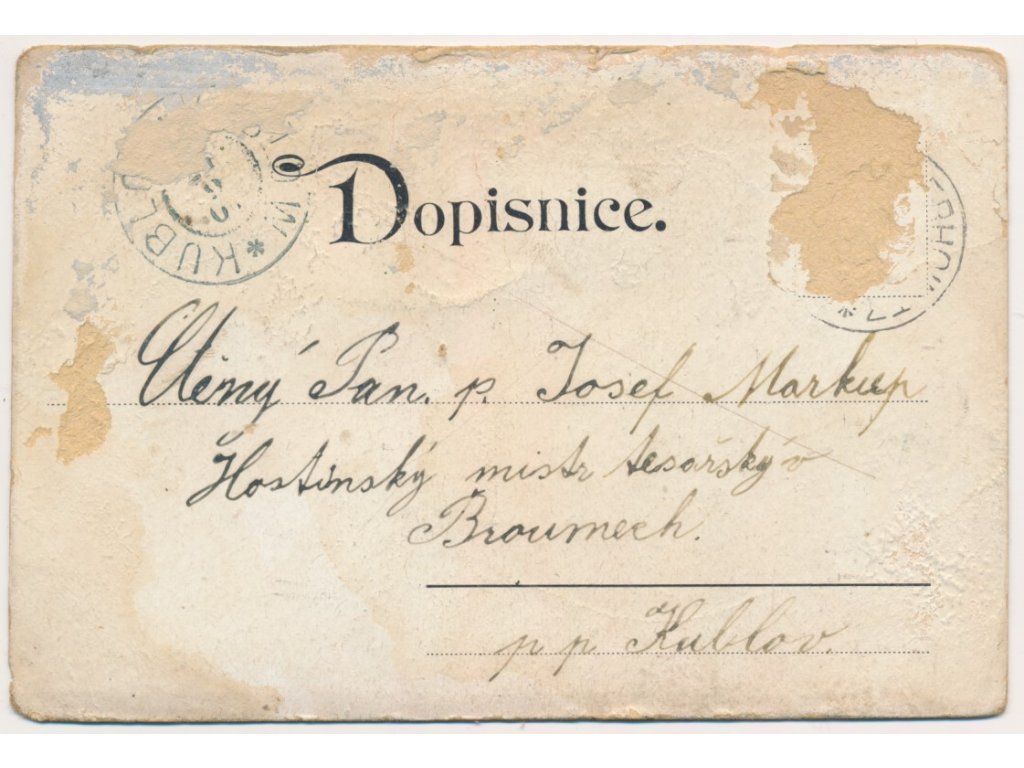 Dopisnice.
* KUBL
Ctěný Pán. p. Josef Markup
Hostinský mistr tesařský v
Broumech.
p p Kublov.